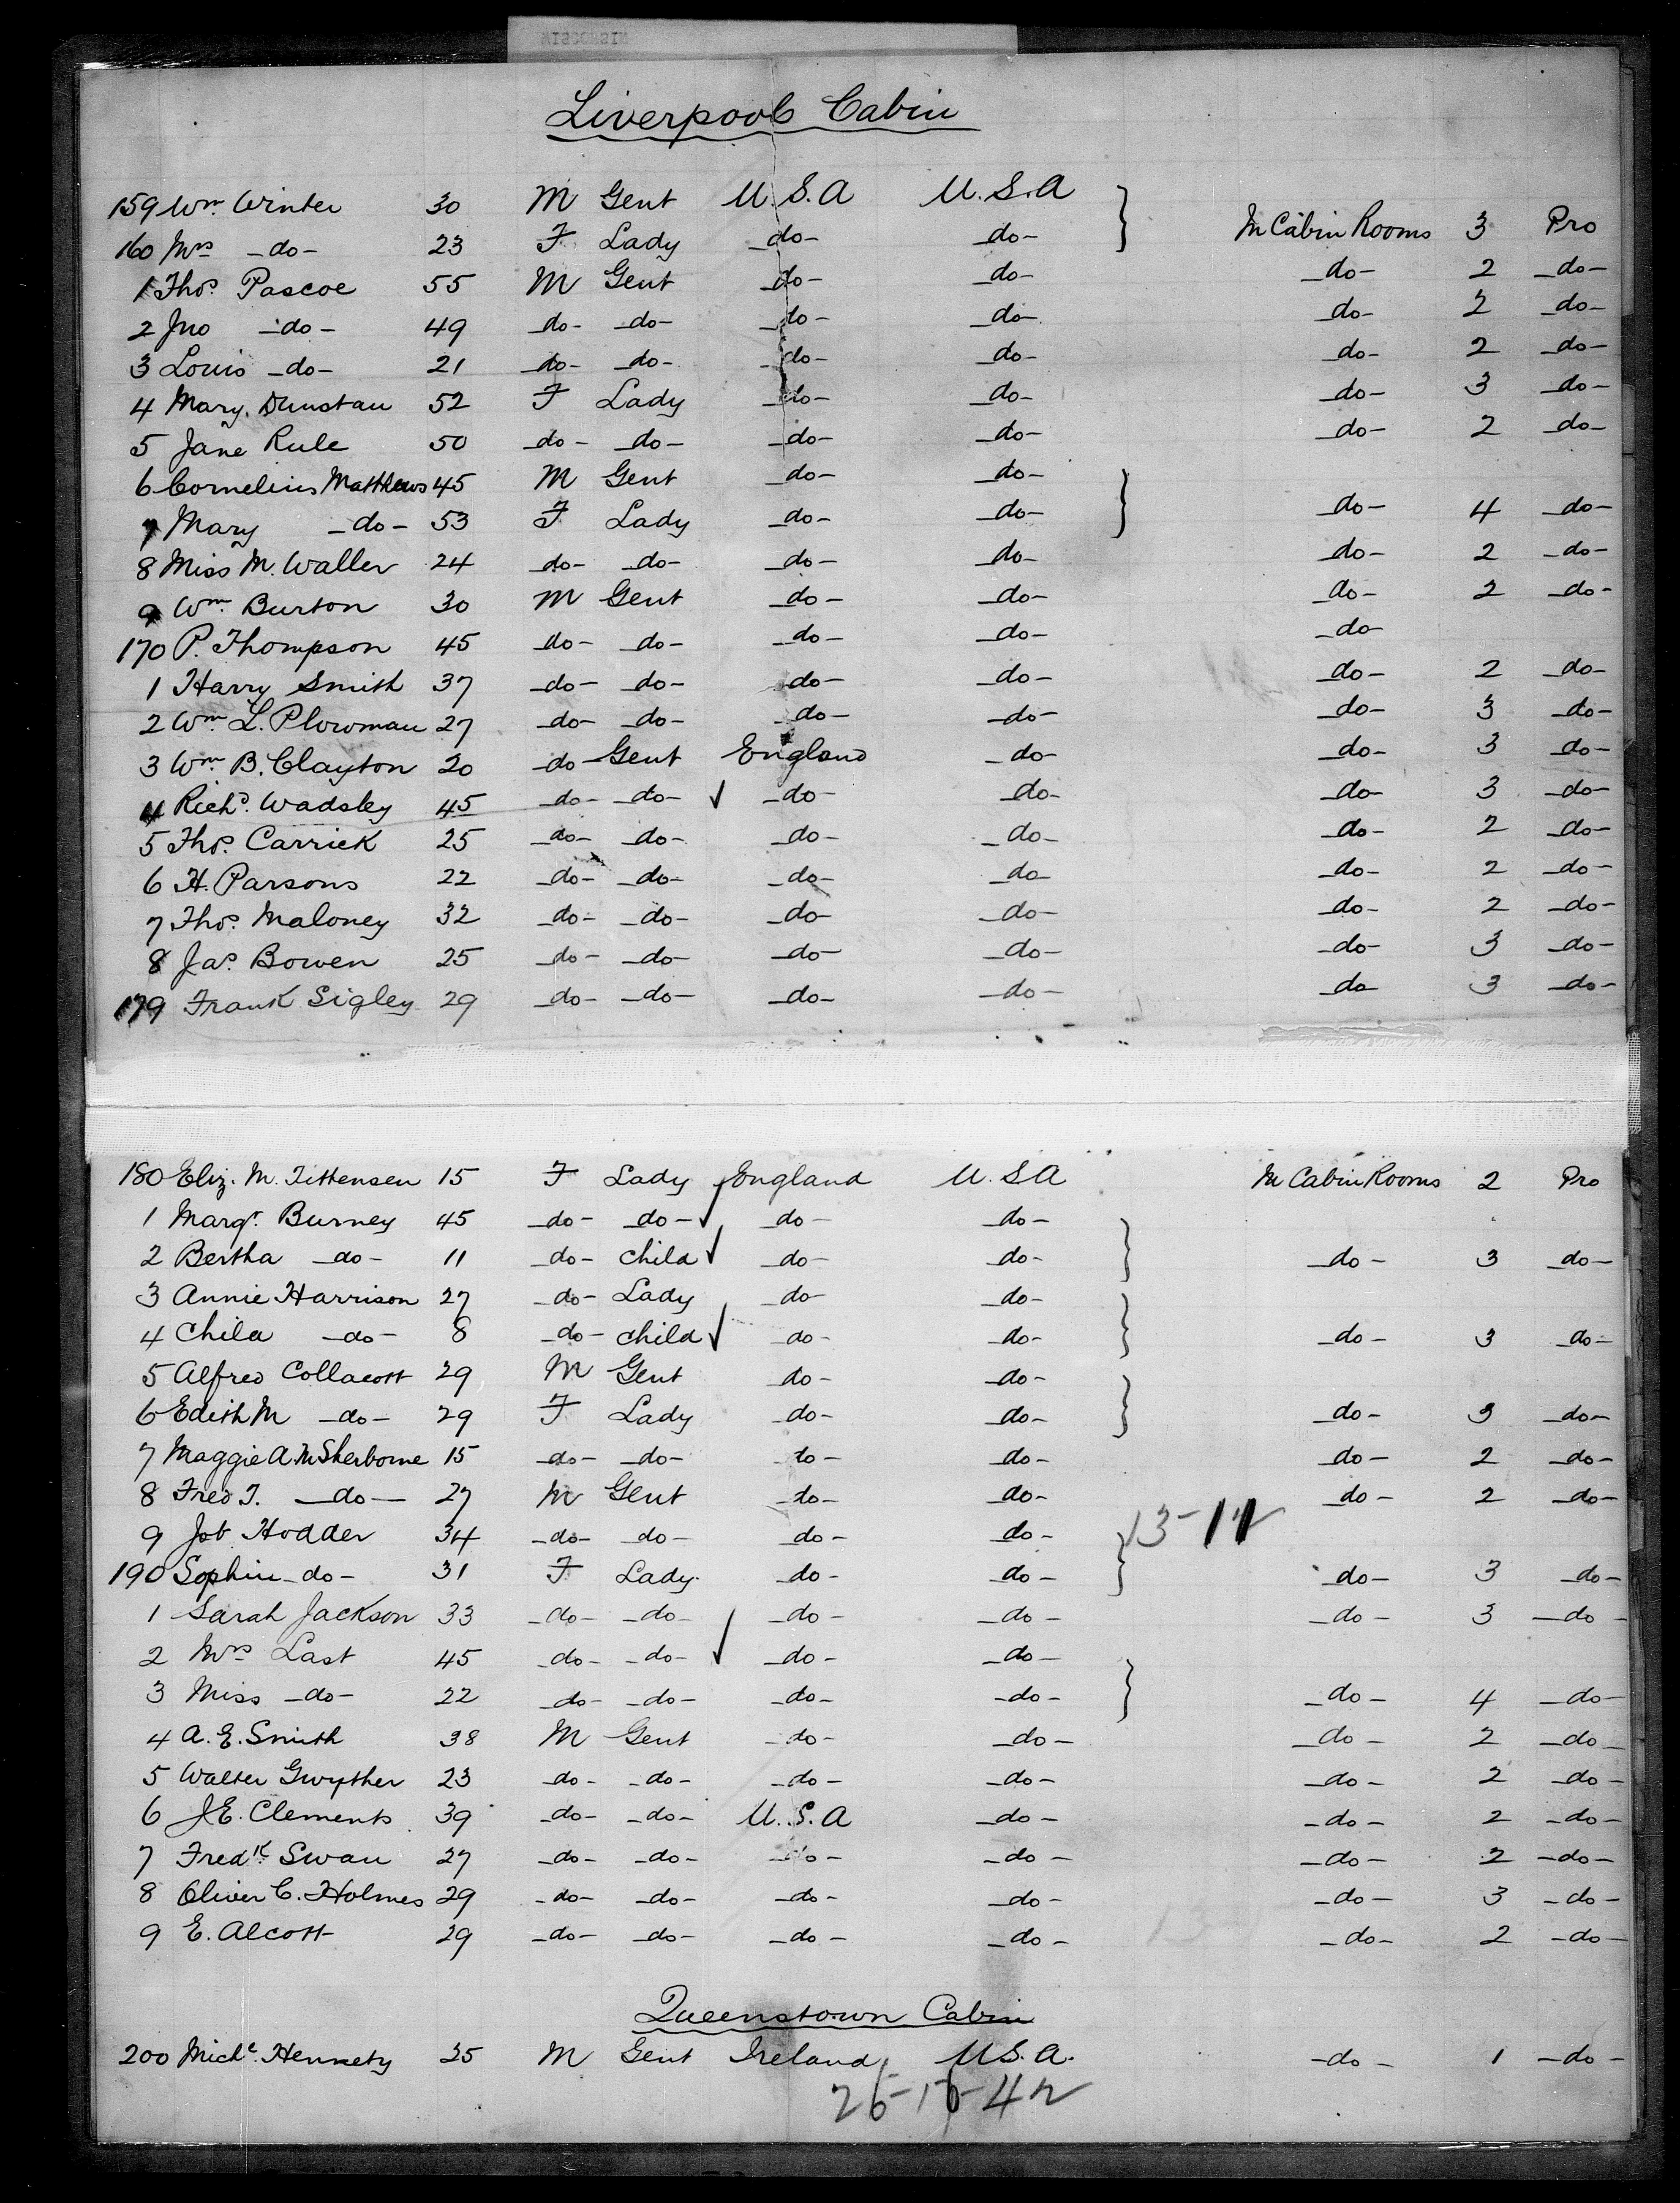 Liverpool Cabin
159 Wm. Winter 30 M Gent U.S.A U.S.A
160 Mrs -do- 23 F Lady -do- -do- In Cabin Rooms 3 Pro
1 Thos. Pascoe 55 M Gent -do- -do- -do- 2 -do-
2 Jno -do- 49 -do- -do- -do- -do- -do- 2 -do-
3 Louis -do- 21 -do- -do- -do- -do- -do- 2 -do-
4 Mary. Dunstan 52 F Lady -do- -do- -do- 3 -do-
5 Jane Rule 50 -do- -do- -do- -do- -do- 2 -do-
6 Cornelius Matthews 45 M Gent -do- -do-
7 Mary -do- 53 F Lady -do- -do- -do- 4 -do-
8 Miss M. Waller 24 -do- -do- -do- -do- -do- 2 -do-
9 Wm. Burton 30 M Gent -do- -do- -do- 2 -do-
170 P. Thompson 45 -do- -do- -do- -do- -do-
1 Harry Smith 37 -do- -do- -do- -do- -do- 2 -do-
2 Wm. L. Plowman 27 -do- -do- -do- -do- -do- 3 -do-
3 Wm. B. Clayton 20 -do Gent England -do- -do- 3 -do-
4 Richd. Wadsley 45 -do- -do- ✓ -do- -do- -do- 3 -do-
5 Thos. Carrick 25 -do- -do- -do- -do- -do- 2 -do-
6 H. Parsons 22 -do- -do- -do- -do- -do- 2 -do-
7 Thos. Maloney 32 -do- -do- -do- -do- -do- 2 -do-
8 Jas. Bowen 25 -do- -do- -do- -do- -do- 3 -do-
179 Frank Sigley 29 -do- -do- -do- -do- -do- 3 -do-
180 Eliz. M. Tittensen 15 F Lady England U.S.A In Cabin Rooms 2 Pro
1 Margt. Burney 45 -do- -do- ✓ -do- -do-
2 Bertha -do- 11 -do- child ✓ -do- -do- -do- 3 -do-
3 Annie Harrison 27 -do- Lady -do- -do-
4 Child -do- 8 -do- child ✓ -do- -do- -do- 3 -do-
5 Alfred Collacott 29 M Gent -do- -do-
6 Edith M -do- 29 F Lady -do- -do- -do- 3 -do-
7 Maggie A. M Sherborne 15 -do- -do- -do- -do- -do- 2 -do-
8 Fred T. -do- 27 M Gent -do- -do- -do- 2 -do-
9 Job Hodder 34 -do- -do- -do- -do- 13-
190 Sophia -do- 31 F Lady -do- -do- -do- 3 -do-
1 Sarah Jackson 33 -do- -do- -do- -do- -do- 3 -do-
2 Mrs Last 45 -do- -do- ✓ -do- -do-
3 Miss -do- 22 -do- -do- -do- -do- -do- 4 -do-
4 A. E. Smith 38 M Gent -do- -do- -do- 2 -do-
5 Walter Gwyther 23 -do- -do- -do- -do- -do- 2 -do-
6 J.E. Clements 39 -do- -do- U.S.A -do- -do- 2 -do-
7 Fredk. Swan 27 -do- -do- -do- -do- -do- 2 -do-
8 Oliver C. Holmes 29 -do- -do- -do- -do- -do- 3 -do-
9 E. Alcott 29 -do- -do- -do- -do- -do- 2 -do-
Queenstown Cabin
200 Michl. Hennety 25 M Gent Ireland U.S.A. -do- 1 -do-